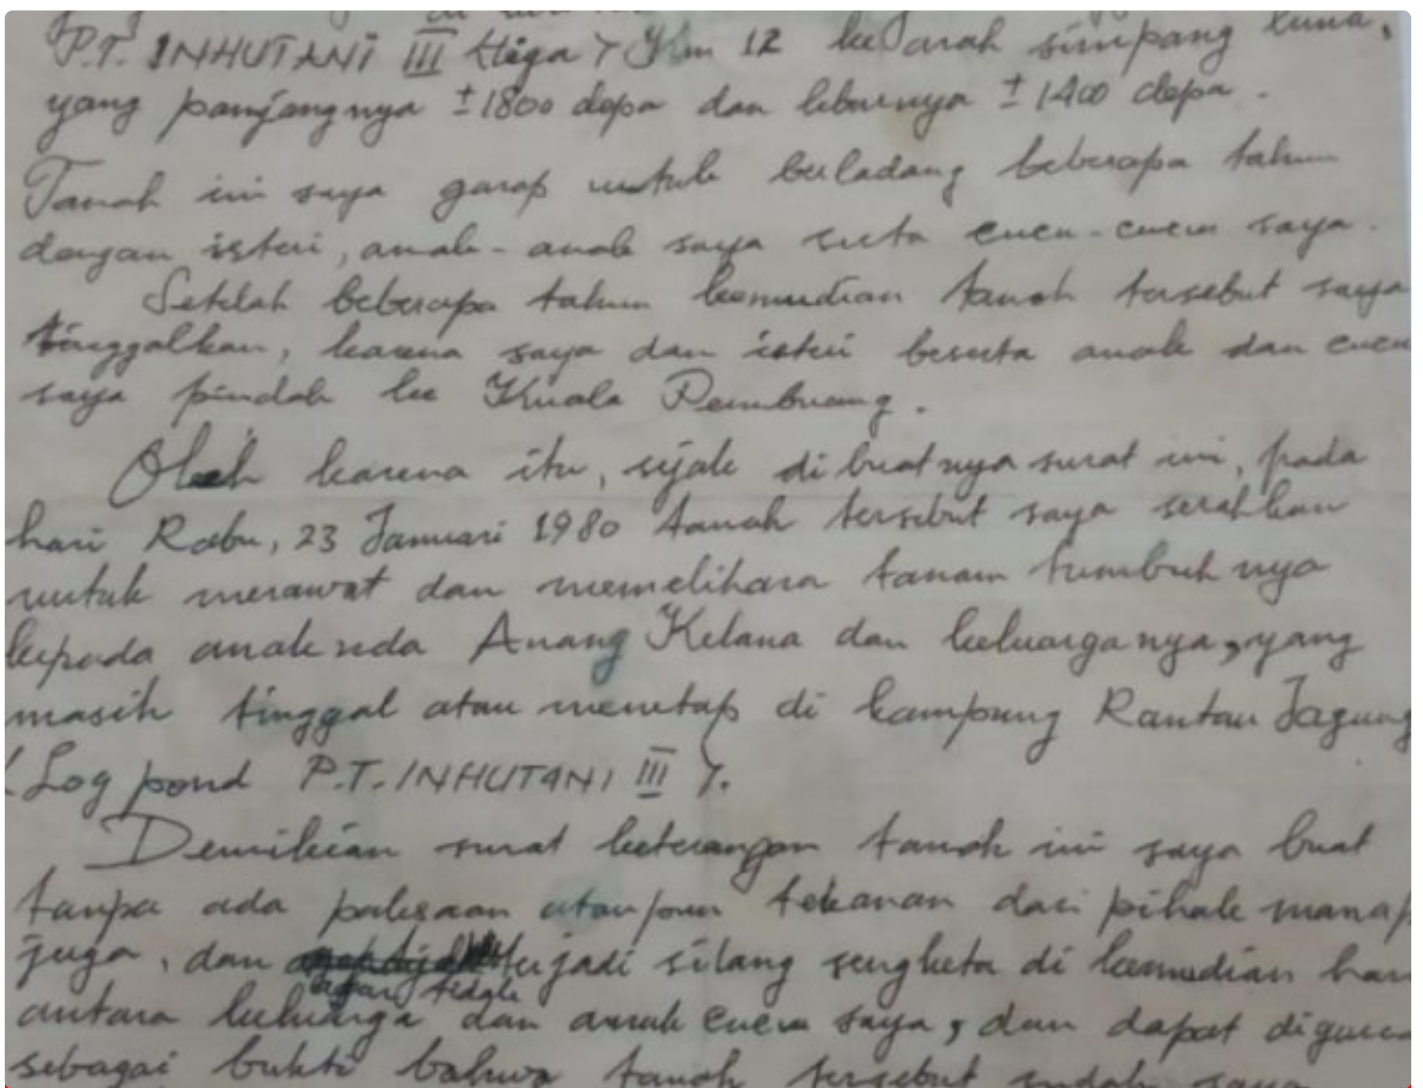 P.T. INHUTANI III (tiga) Km 12 ke arah simpang luna,
yang panjangnya ± 1800 depa dan lebarnya ± 1400 depa.
Tanah ini saya garap untuk berladang beberapa tahun
dengan isteri, anak-anak saya serta cucu-cucu saya.
Setelah beberapa tahun kemudian tanah tersebut saya
tinggalkan, karena saya dan isteri beserta anak dan cucu
saya pindah ke Kuala Pembuang.
Oleh karena itu, sejak dibuatnya surat ini, pada
hari Rabu, 23 Januari 1980 tanah tersebut saya serahkan
untuk merawat dan memelihara tanam tumbuhnya
kepada anaknda Anang Kelana dan keluarganya, yang
masih tinggal atau menetap di kampung Rantau Jagung
(Log pond P.T. INHUTANI III ).
Demikian surat keterangan tanah ini saya buat
tanpa ada paksaan ataupun tekanan dari pihak manap
juga, dan agar tidak terjadi silang sengketa di kemudian hari
antara keluarga dan anak cucu saya, dan dapat digun
sebagai bukti bahwa tanah tersebut sudah saya